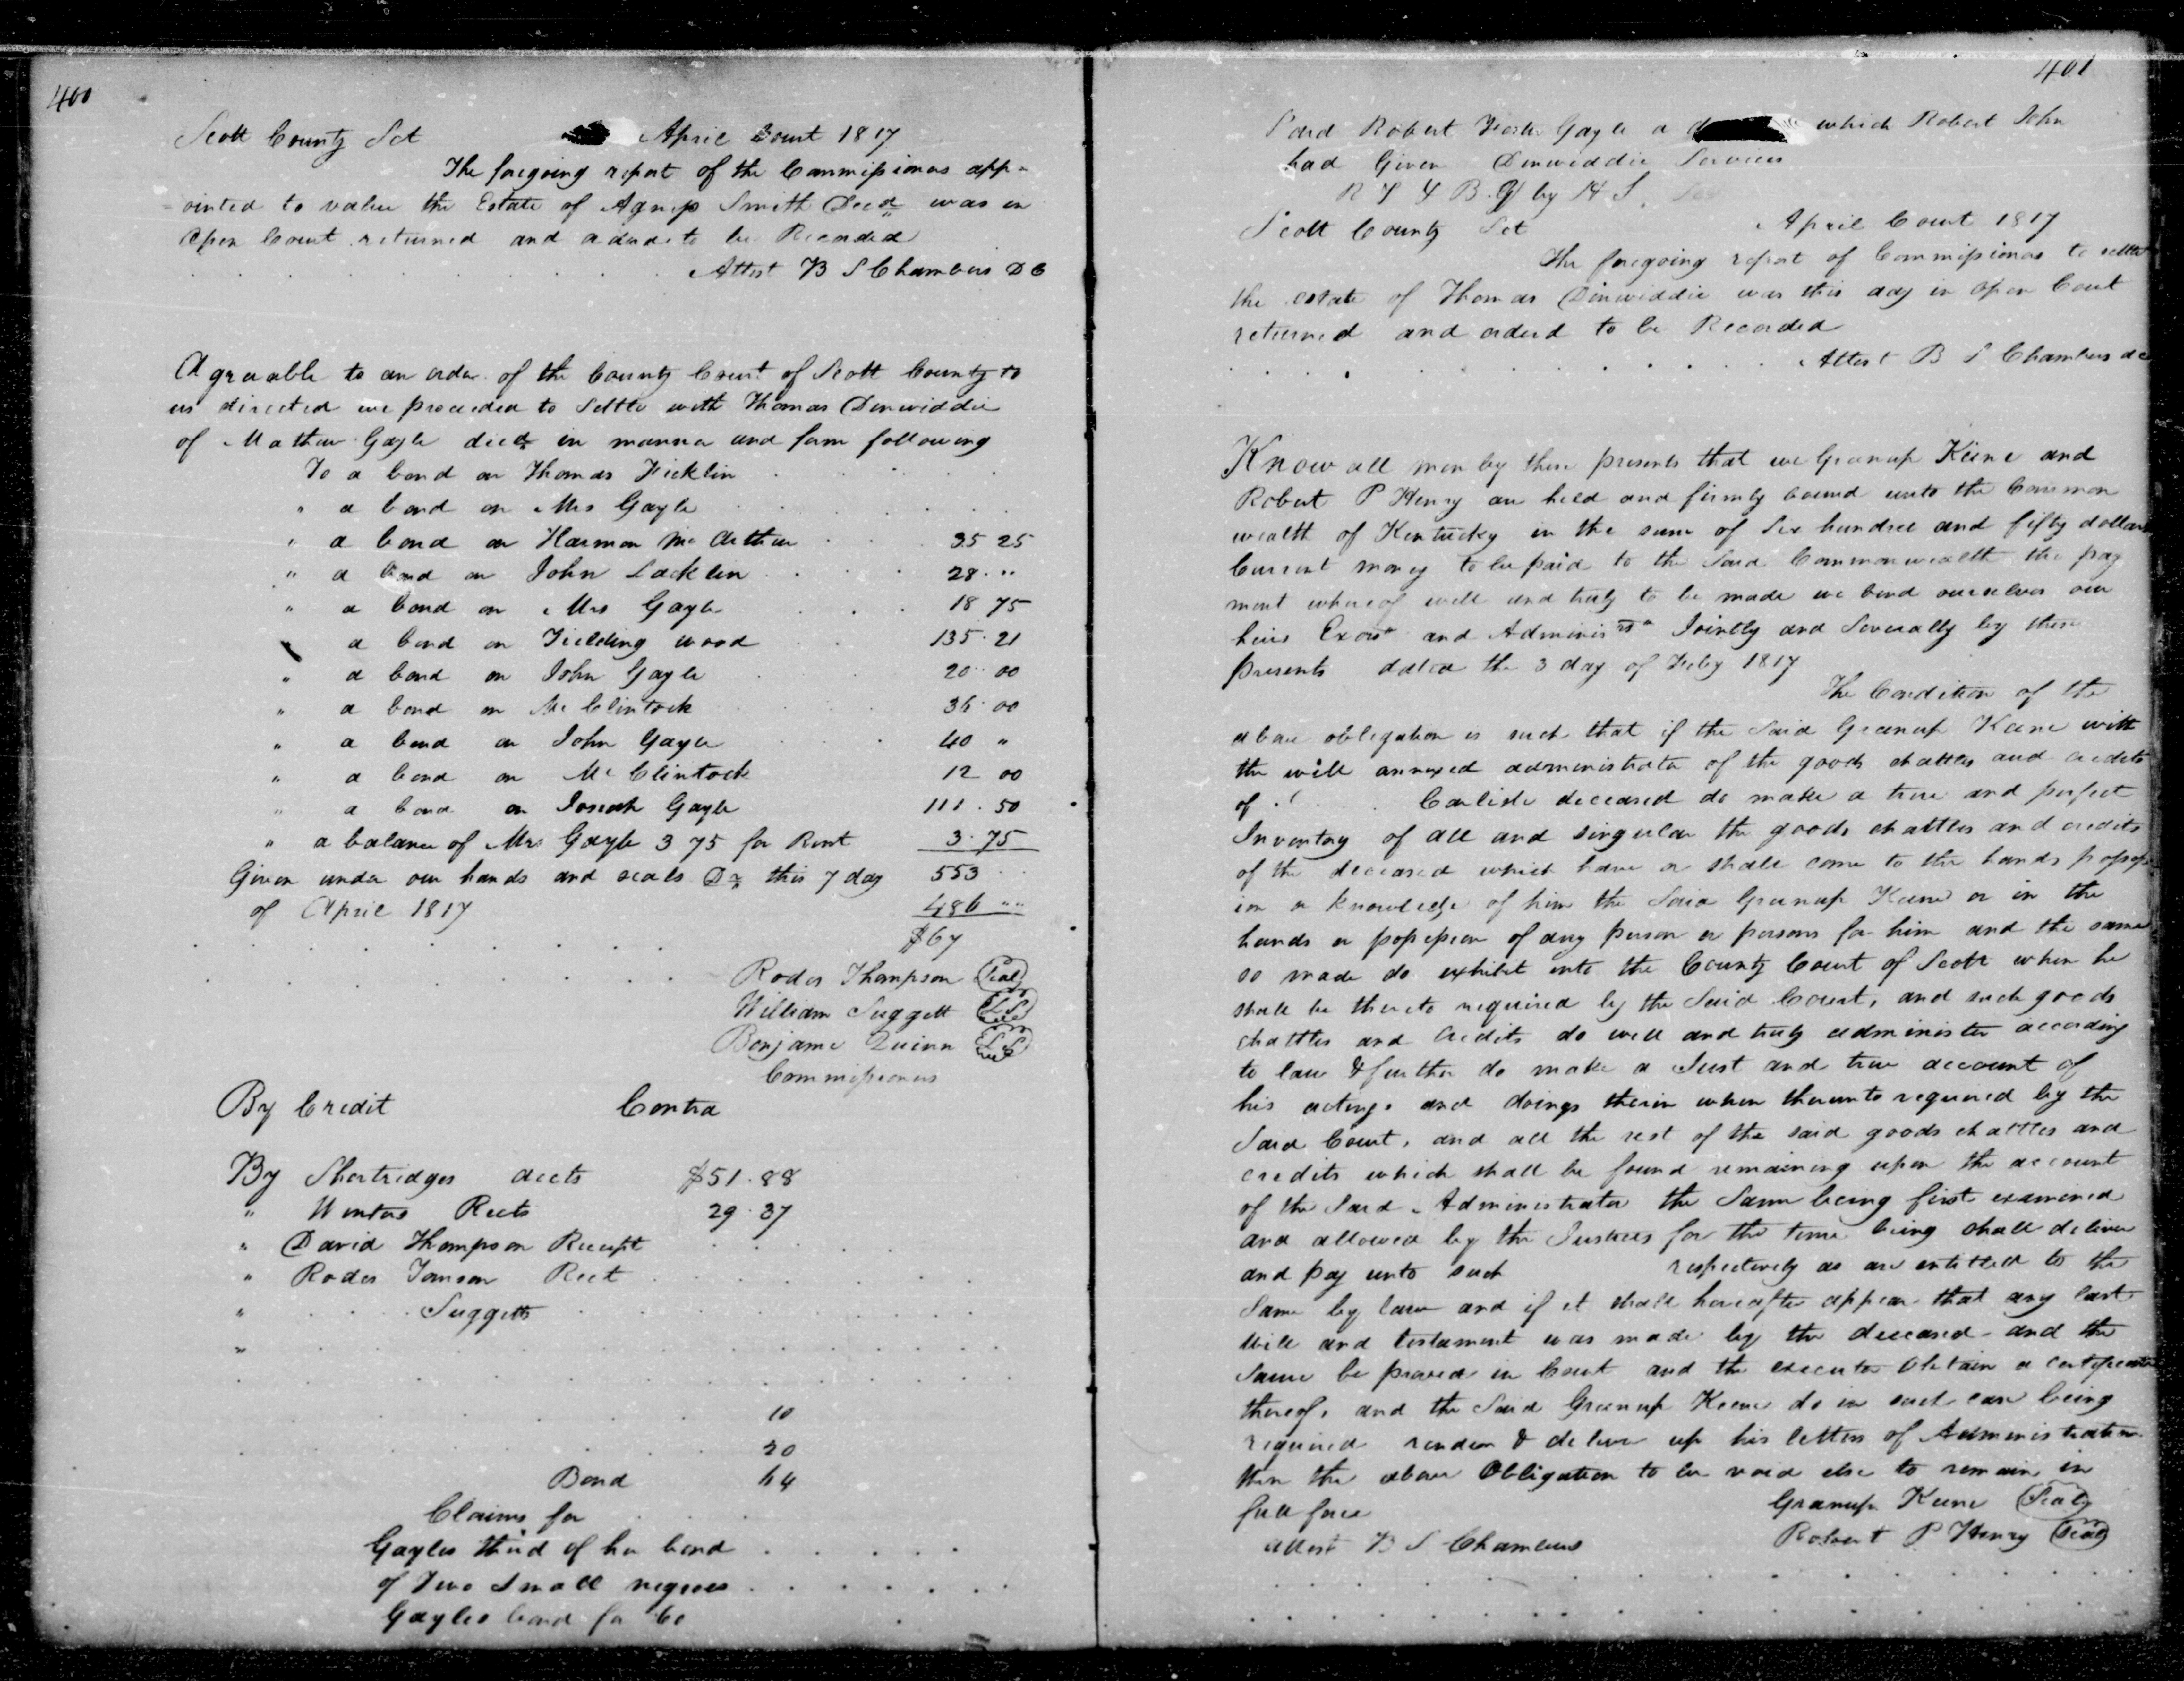 400
Scott County Sct April Court 1817
The foregoing report of the Commissioners app-
ointed to value the Estate of Agness Smith Decd was in
Open Court returned and ordered to be Recorded
Attest B S Chambers D C
Agreeable to an order of the County Court of Scott County to
us directed we proceeded to Settle with Thomas Dinwiddie
of Mathew Gayle decd in manner and form following
To a bond on Thomas Ficklin
" a bond on Mrs Gayle
" a bond on Harmon Mc Arthur 35 25
" a bond on John Lacklin 28 "
" a bond on Mrs Gayle 18 75
a bond on Fielding Wood 135.21
" a bond on John Gayle 20 00
" a bond on Mc Clintock 36.00
" a bond on John Gayle 40 "
" a bond on Mc Clintock 12 00
" a bond on Josiah Gayle 111.50
" a balance of Mrs Gayle 3 75 for Rent 3.75
Given under our hands and seals this 7 day 553
of April 1817 486 ""
$67
Rodes Thompson Seal
William Suggett LS
Benjamin Quinn LS
Commissioners
By Credit Contra
By Shortridges accts $51.88
" Rects 29.37
" David Thompson Receipt
" Rodes Rect
" Suggetts
"
10
20
Bond 64
Claims for
Gayles third of her bond
of Two Small negroes
Gayles bond for 60
401
Said Robert Foster Gayle a which Robert John
had Given Dinwiddie Services
Scott County Sct April Court 1817
The foregoing report of Commissioners to settle
the estate of Thomas Dinwiddie was this day in open Court
returned and ordered to be Recorded
Attest B S Chambers dc
Know all men by these presents that we Greenup Keene and
Robert P Henry are held and firmly bound unto the Common
wealth of Kentucky in the sum of Six hundred and fifty dollars
Current money to be paid to the Said Commonwealth the pay
ment whereof well and truly to be made we bond ourselves our
heirs and Jointly and Severally by these
presents dated the 3 day of Feby 1817
The Condition of the
above obligation is such that if the Said Greenup Keene with
the will annexed administrator of the goods chattles and credits
of Carlisle deceased do make a true and perfect
Inventory of all and singular the goods chattles and credits
of the deceased which have or shall come to the hands possess
ion or knowledge of him the Said Greenup Keene or in the
hands or possession of any person or persons for him and the same
so made do exhibit into the County Court of Scott when he
shall be thereto required by the Said Court, and such goods
chattles and credits do well and truly administer according
to law & further do make a Just and true account of
his actings and doings therein when thereunto required by the
Said Court, and all the rest of the said goods chattles and
credits which shall be found remaining upon the account
of the Said Administrator the Same being first examined
and allowed by the Justices for the time being shall deliver
and pay unto such respectively as are entitled to the
Same by law and if it shall hereafter appear that any last
Will and testament was made by the deceased and the
Same be proved in Court and the executor obtain a certificate
thereof, and the Said Greenup Keene do in such case being
required render & deliver up his letters of Administration
then the above Obligation to be void else to remain in
full force Greenup Keene Seal
attest B S Chambers Robert P Henry Seal